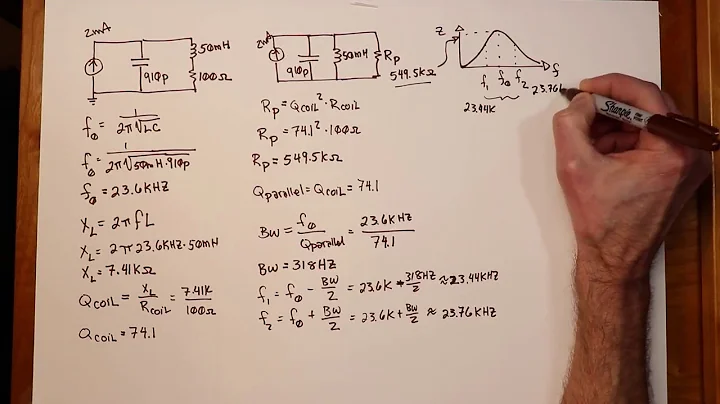 2mA
910p
50mH
100Ω
f₀ = 1 / 2π√LC
f₀ = 1 / 2π√50mH·910p
f₀ = 23.6KHZ
X_L = 2πfL
X_L = 2π23.6KHZ·50mH
X_L = 7.41KΩ
Q_COIL = X_L / R_COIL = 7.41K / 100Ω
Q_COIL = 74.1
2mA
910p
50mH
R_P
549.5KΩ
R_P = Q_COIL² · R_COIL
R_P = 74.1² · 100Ω
R_P = 549.5KΩ
Q_parallel = Q_COIL = 74.1
BW = f₀ / Q_parallel = 23.6KHZ / 74.1
BW = 318HZ
f₁ = f₀ - BW/2 = 23.6K - 318HZ/2 ≈ 23.44KHZ
f₂ = f₀ + BW/2 = 23.6K + BW/2 ≈ 23.76KHZ
Z
f
f₁ f₀ f₂
23.44K
23.76
Sharpie